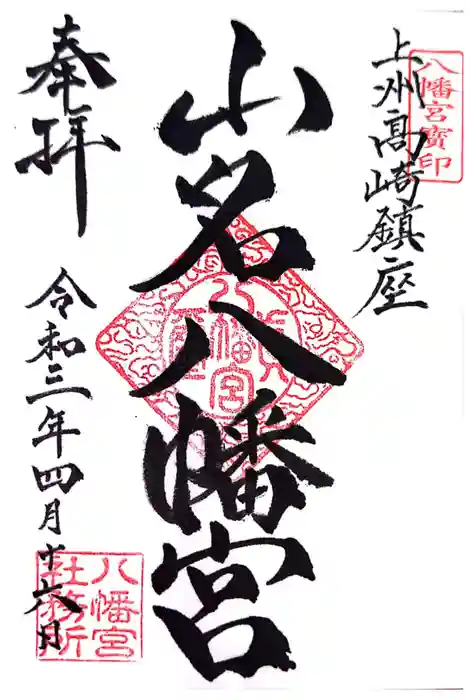 上州高崎鎮座
八幡宮寳印
山名八幡宮
奉拝
令和三年四月十六日
八幡宮
社務所